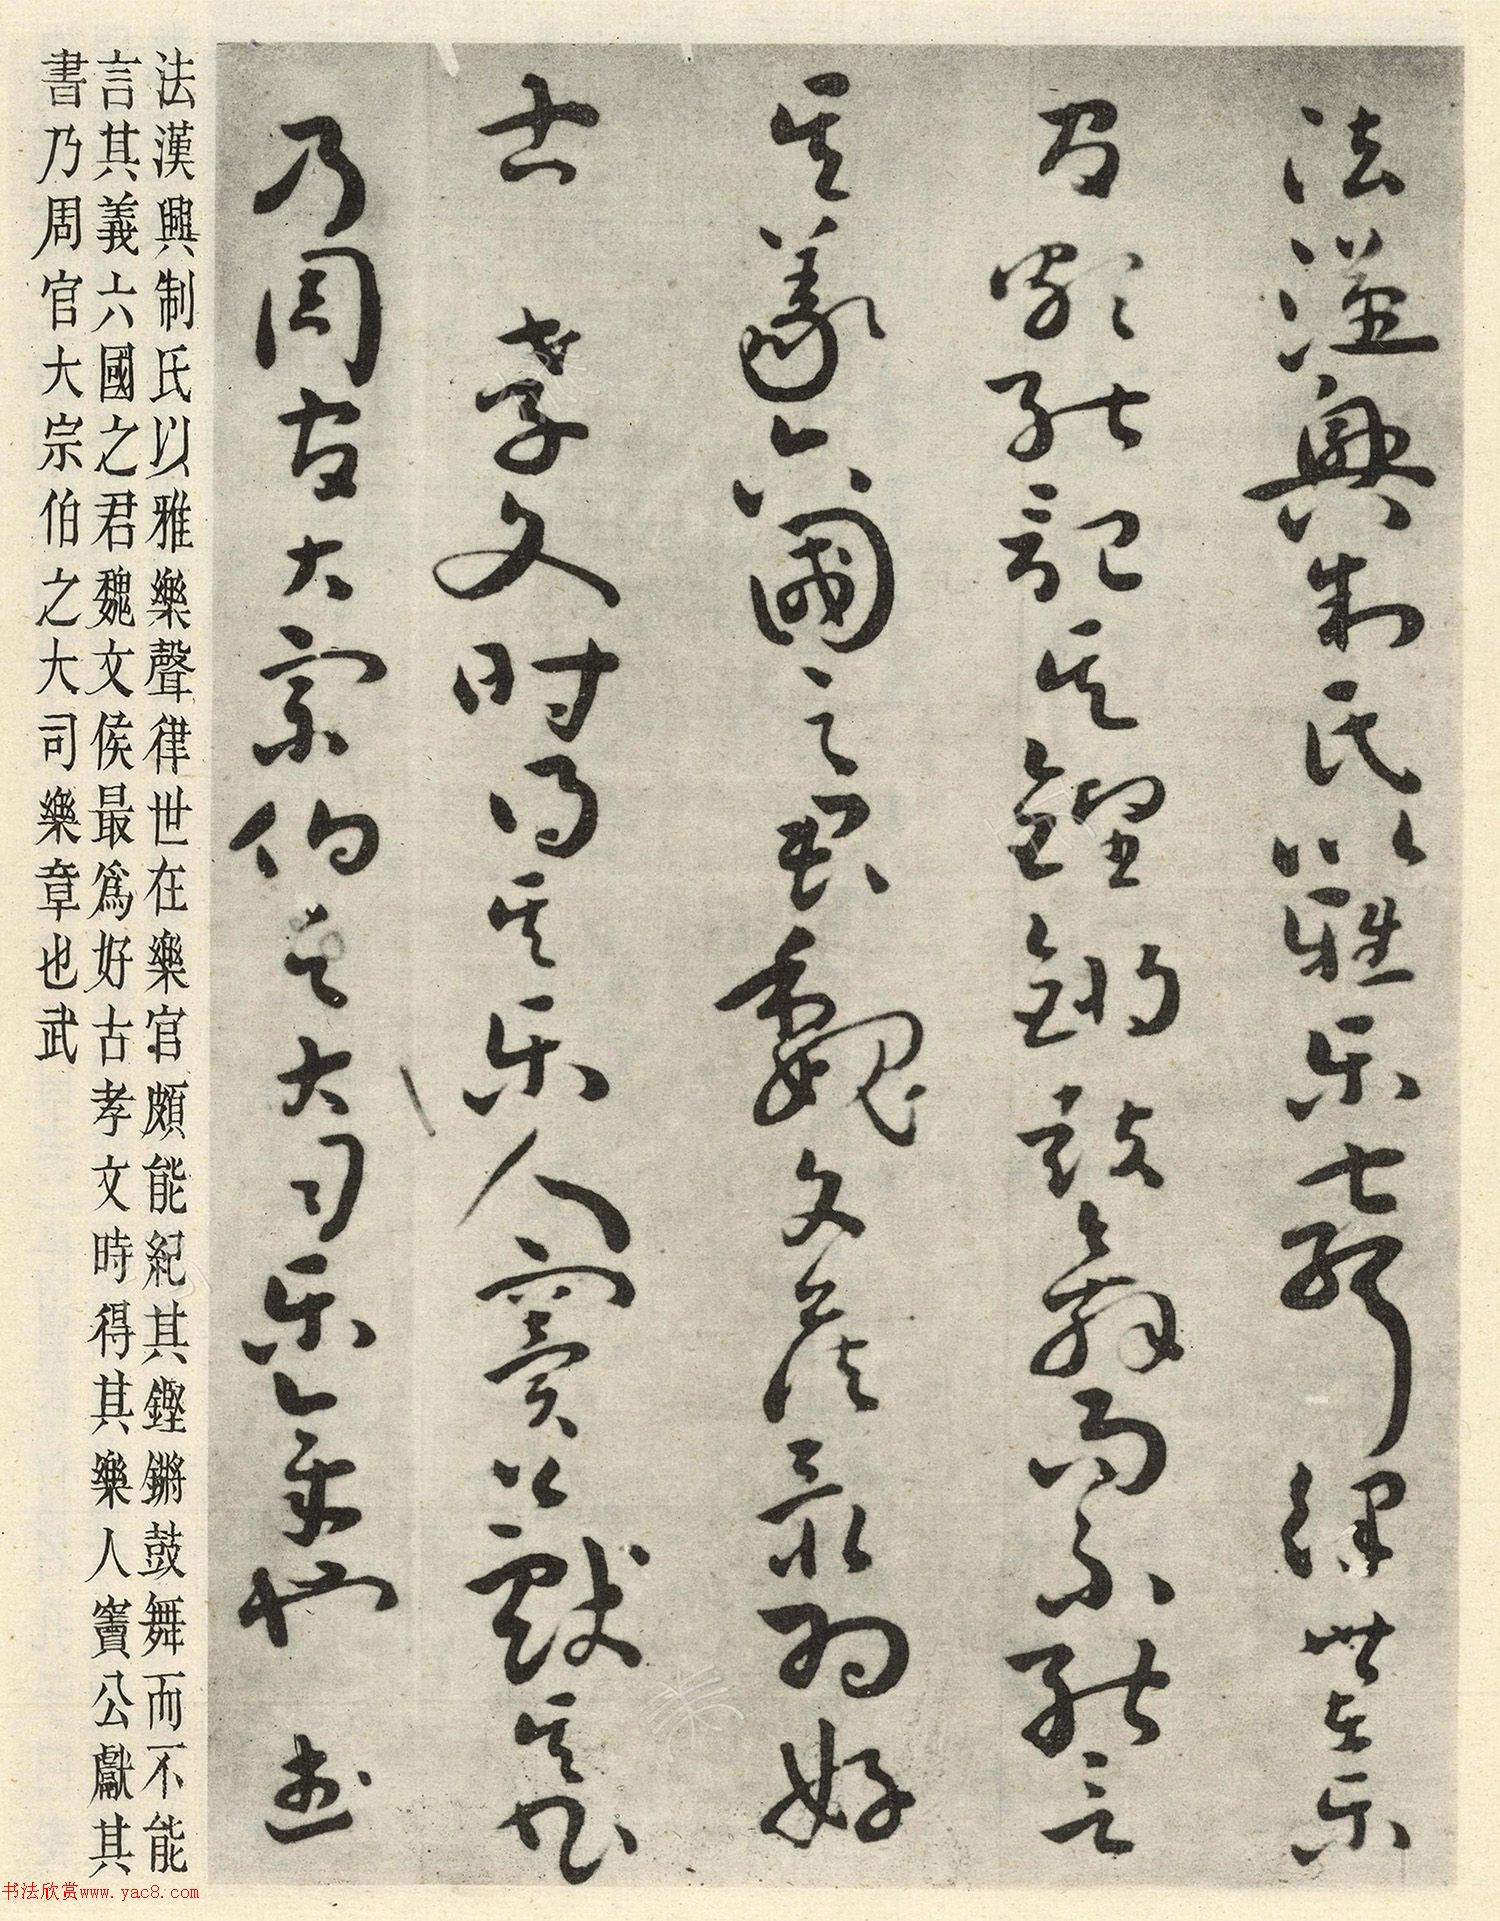 法漢興制氏以雅樂聲律世在樂
官頗能記其鏗鏘鼓舞而不能言
其義六國之君魏文侯最為好
古孝文時得其樂人竇公獻其書
乃周官大宗伯之大司樂章也武
法漢興制氏以雅樂聲律世在樂官頗能紀其鏗鏘鼓舞而不能
言其義六國之君魏文侯最爲好古孝文時得其樂人竇公獻其
書乃周官大宗伯之大司樂章也武
书法欣赏www.yac8.com